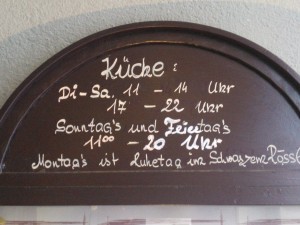 Küche:
Di-Sa. 11 - 14 Uhr
17 - 22 Uhr
Sonntag's und Feiertag's
11⁰⁰ - 20 Uhr
Montag's ist Ruhetag im Schwarzen Röss